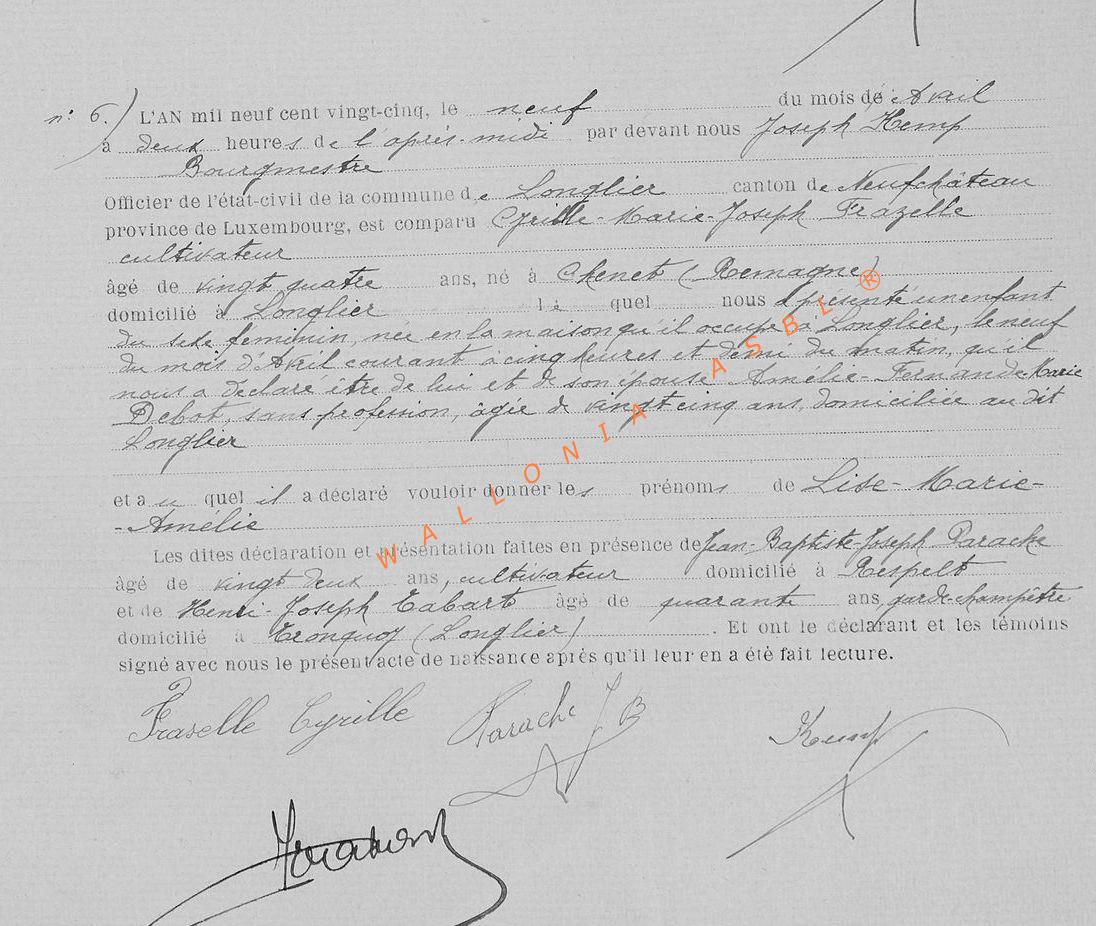 n° 6.) L'AN mil neuf cent vingt-cinq, le neuf du mois de Avril
à deux heures de l'après-midi par devant nous Joseph Kemp
Bourgmestre
Officier de l'état-civil de la commune de Longlier canton de Neufchâteau
province de Luxembourg, est comparu Cyrille-Marie-Joseph Frazelle
cultivateur
âgé de vingt quatre ans, né à Chenet (Remagne)
domicilié à Longlier lequel nous a présenté un enfant
du sexe féminin, née en la maison qu'il occupe à Longlier, le neuf
du mois d'Avril courant à cinq heures et demi du matin, qu'il
nous a déclaré être de lui et de son épouse Amélie-Fernande Marie
Debot, sans profession, âgée de vingt cinq ans, domiciliée au dit
Longlier
et au quel il a déclaré vouloir donner les prénoms de Lise-Marie-
-Amélie
Les dites déclaration et présentation faites en présence de Jean-Baptiste-Joseph Parache
âgé de vingt deux ans, cultivateur domicilié à Respelt
et de Henri-Joseph Tabart âgé de quarante ans, garde-champêtre
domicilié à Tronquoy (Longlier). Et ont le déclarant et les témoins
signé avec nous le présent acte de naissance après qu'il leur en a été fait lecture.
Fraselle Cyrille Parache J B Kemp
WALLONIA ASBL ®